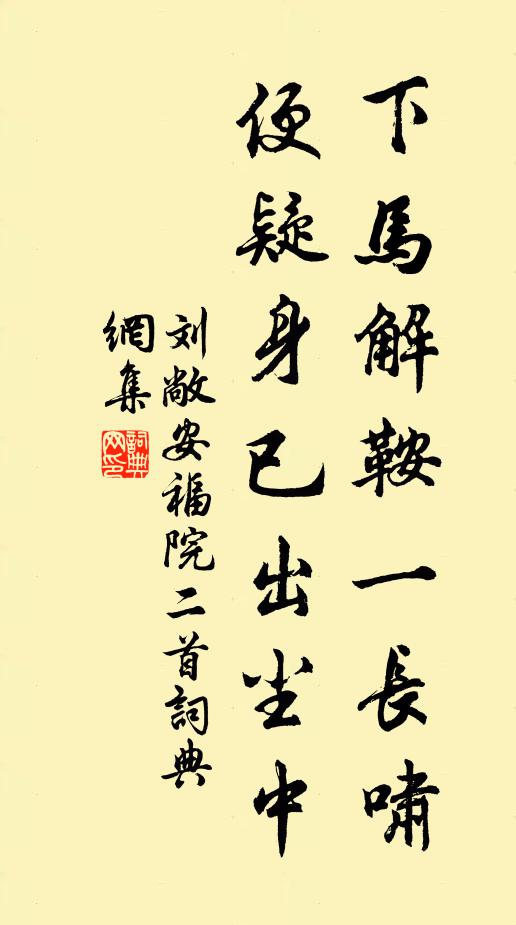 下馬解鞍一長嘯
便疑身已出尘中
刘敞安福院二首詞典
網集
詞典網印